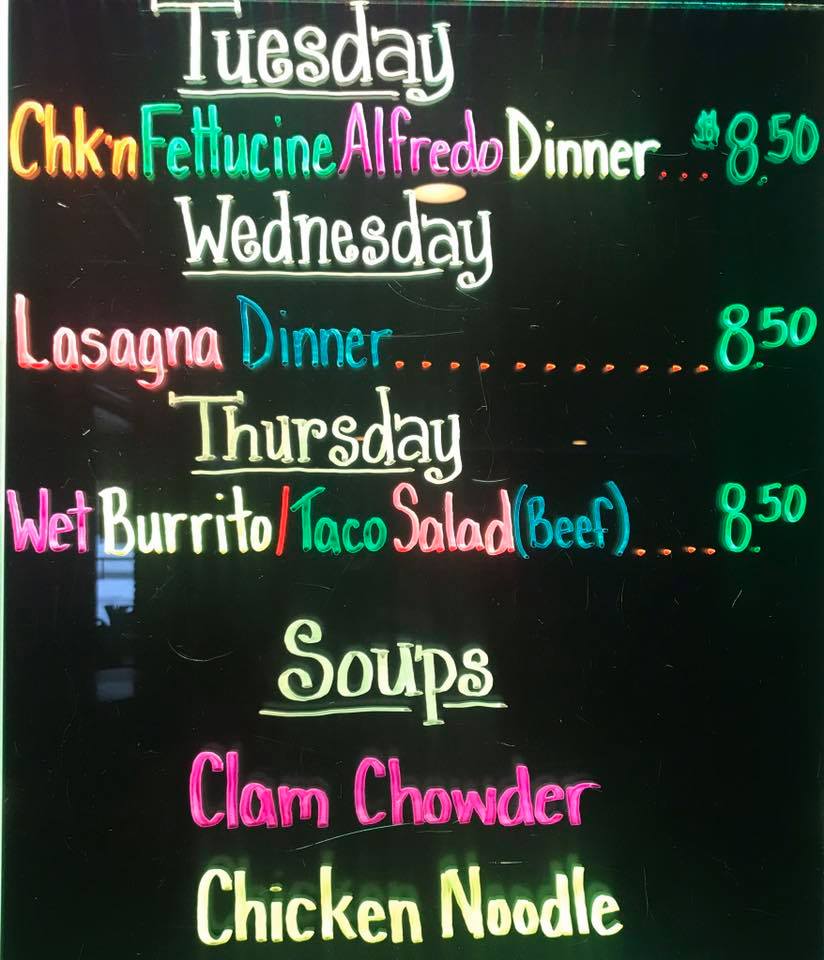 Tuesday
Chk'n Fettucine Alfredo Dinner... $8.50
Wednesday
Lasagna Dinner............ 8.50
Thursday
Wet Burrito/Taco Salad (Beef).... 8.50
Soups
Clam Chowder
Chicken Noodle